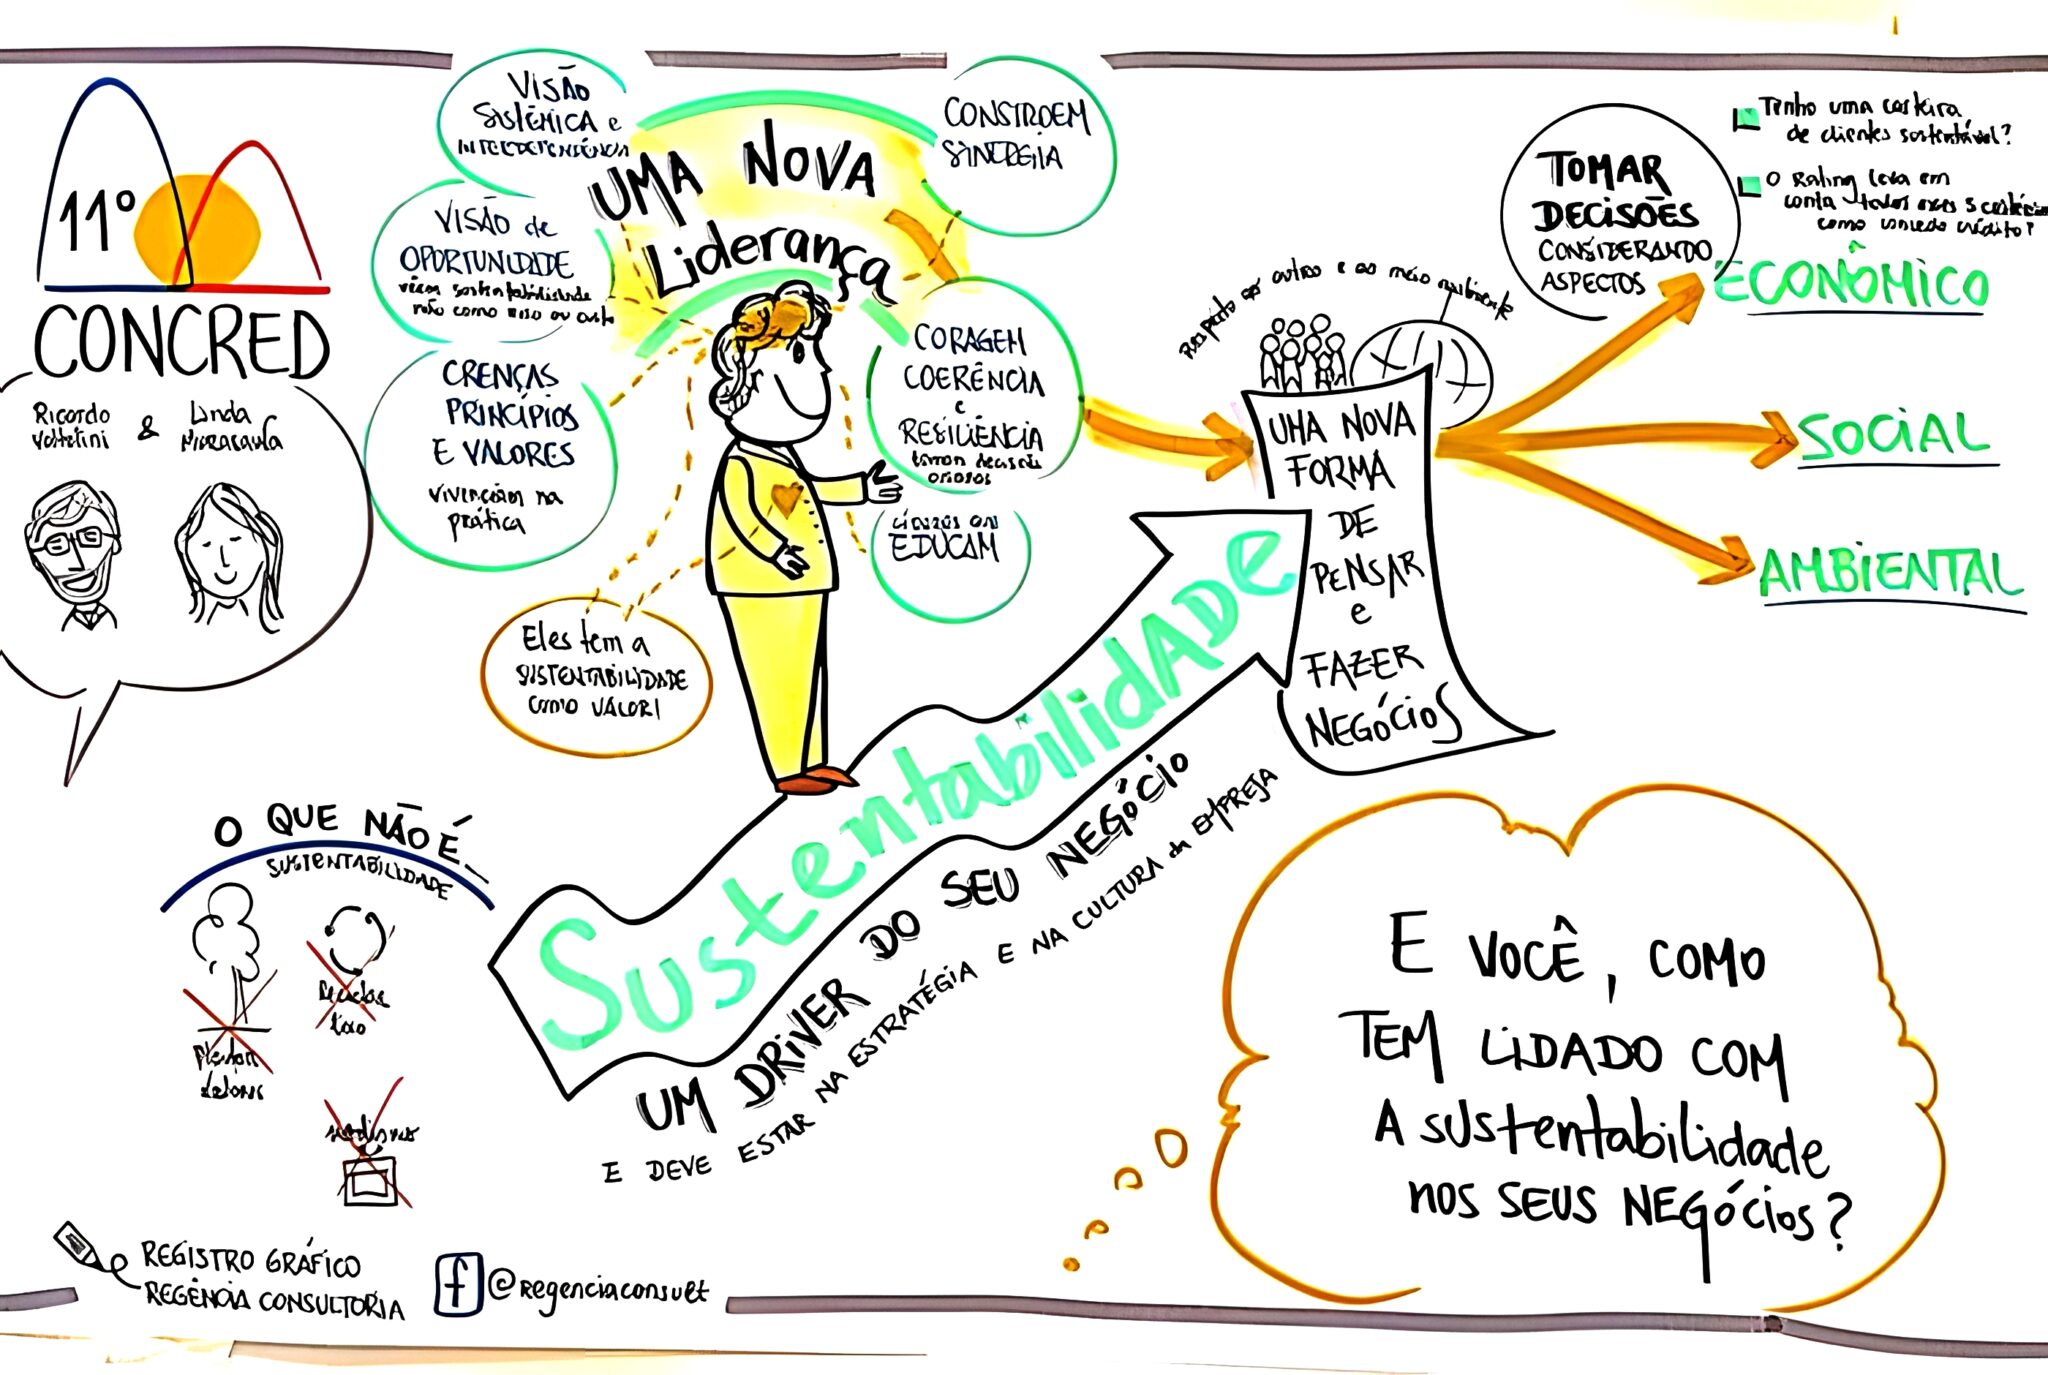 11º
CONCRED
Ricardo
&
Linda
VISÃO
SISTÊMICA e
INTERDEPENDÊNCIA
VISÃO de
OPORTUNIDADE
sustentabilidade
não como
CRENÇAS
PRINCÍPIOS
E VALORES
vivenciam na
prática
UMA NOVA
Liderança
CONSTROEM
SINERGIA
CORAGEM
COERÊNCIA
e
RESILIÊNCIA
EDUCAM
Eles tem a
SUSTENTABILIDADE
como VALOR!
Respeito ao outro e ao meio ambiente
UMA NOVA
FORMA
DE
PENSAR
e
FAZER
NEGÓCIOS
TOMAR
DECISÕES
CONSIDERANDO
ASPECTOS
Tenho uma carteira
de clientes sustentável?
O Rating leva em
conta
como crédito?
ECONÔMICO
SOCIAL
AMBIENTAL
Sustentabilidade
UM DRIVER DO SEU NEGÓCIO
E DEVE ESTAR NA ESTRATÉGIA E NA CULTURA da EMPRESA
O QUE NÃO É...
SUSTENTABILIDADE
E VOCÊ, COMO
TEM LIDADO COM
A sustentabilidade
nos SEUS NEGÓCIOS?
REGISTRO GRÁFICO
REGÊNCIA CONSULTORIA
f @regenciaconsult